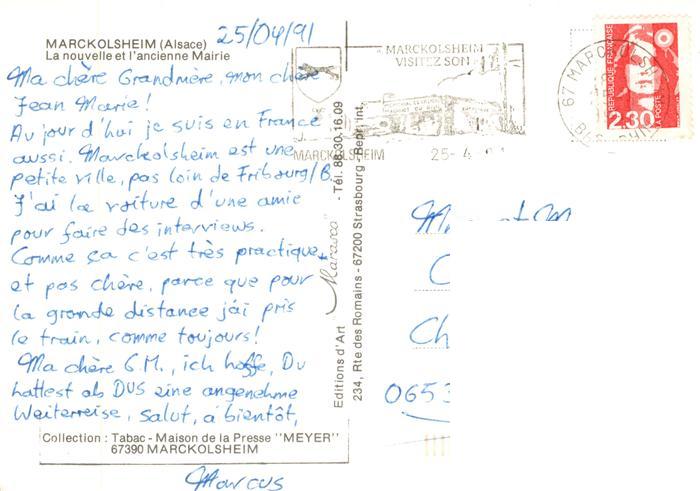 25/04/91
MARCKOLSHEIM (Alsace)
La nouvelle et l'ancienne Mairie
Ma chère Grandmère, mon chère
Jean Marie!
Au jour d'hui je suis en France
aussi. Marckolsheim est une
petite ville, pas loin de Fribourg/B.
J'ai la voiture d'une amie
pour faire des interviews.
Comme ça c'est très practique
et pas chère, parce que pour
la grande distance j'ai pris
le train, comme toujours!
Ma chère G.M., ich hoffe, Du
hattest ab DUS eine angenehme
Weiterreise, Salut, á bientôt,
Marcus
Collection : Tabac - Maison de la Presse "MEYER"
67390 MARCKOLSHEIM
Editions d'Art "Marasco" - Tél. 88.30.16.09
234, Rte des Romains - 67200 Strasbourg Repr. Int.
MARCKOLSHEIM
VISITEZ SON
MARCKOLSHEIM
25-4
67 MARCKOLSHEIM
REPUBLIQUE FRANÇAISE
2,30
LA POSTE
M
C
Ch
0653